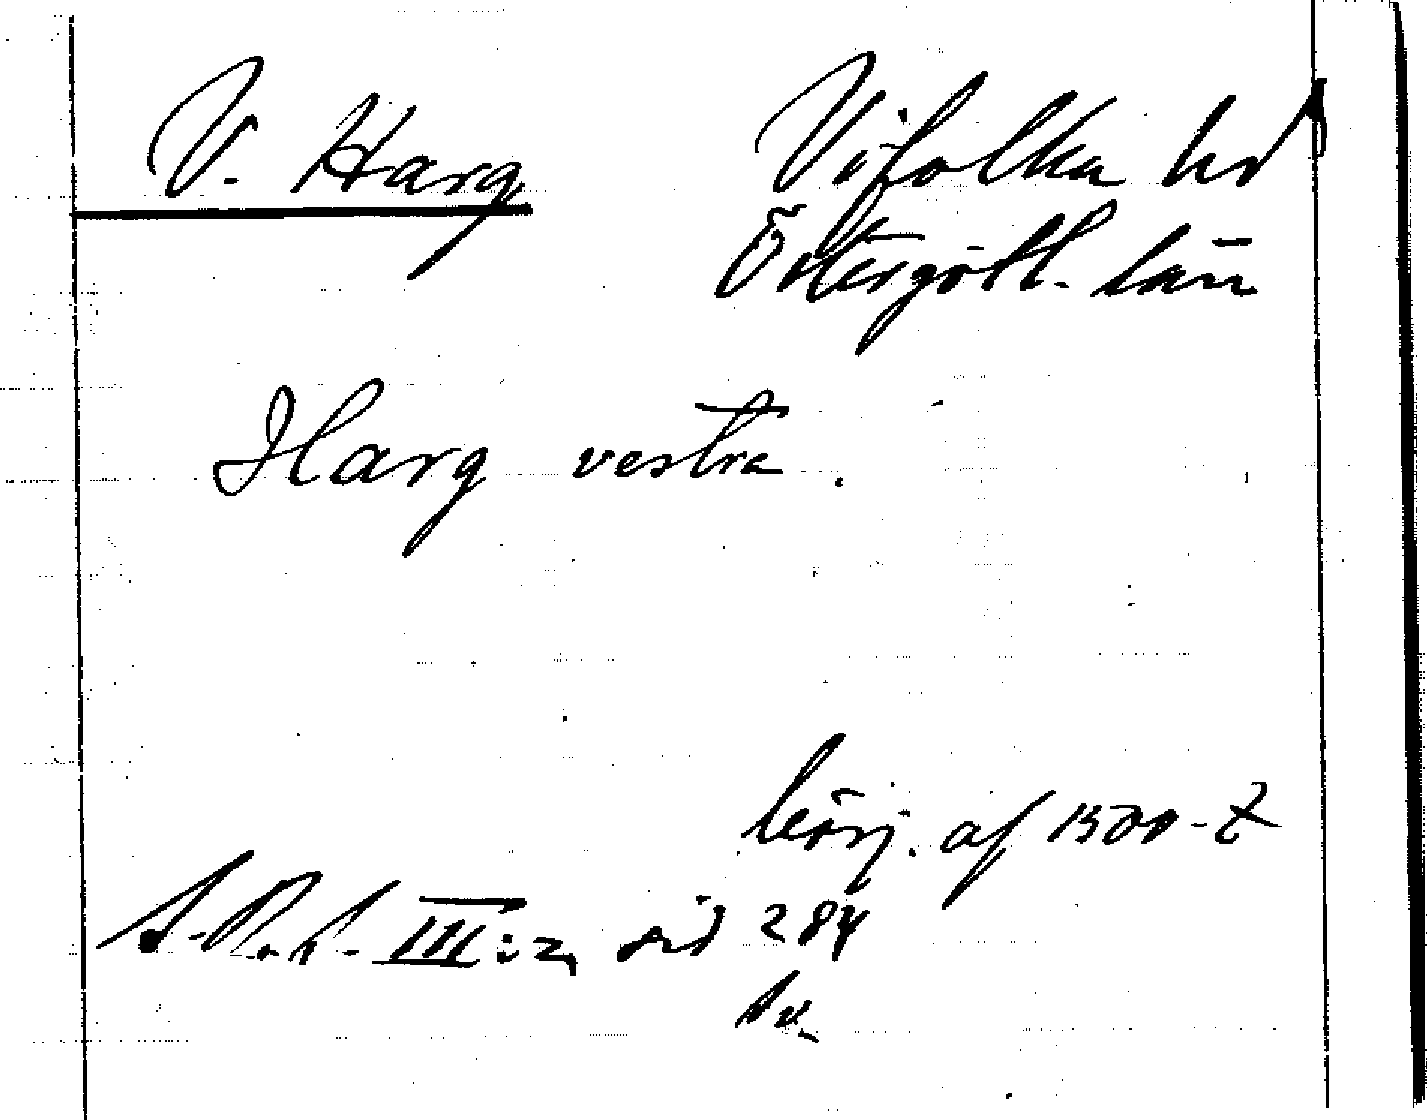 V. Harg
Vifolka hd
Östergötl. län
Harg vestra.
börj. af 1500-t
S.R.h. III:2, sid 284